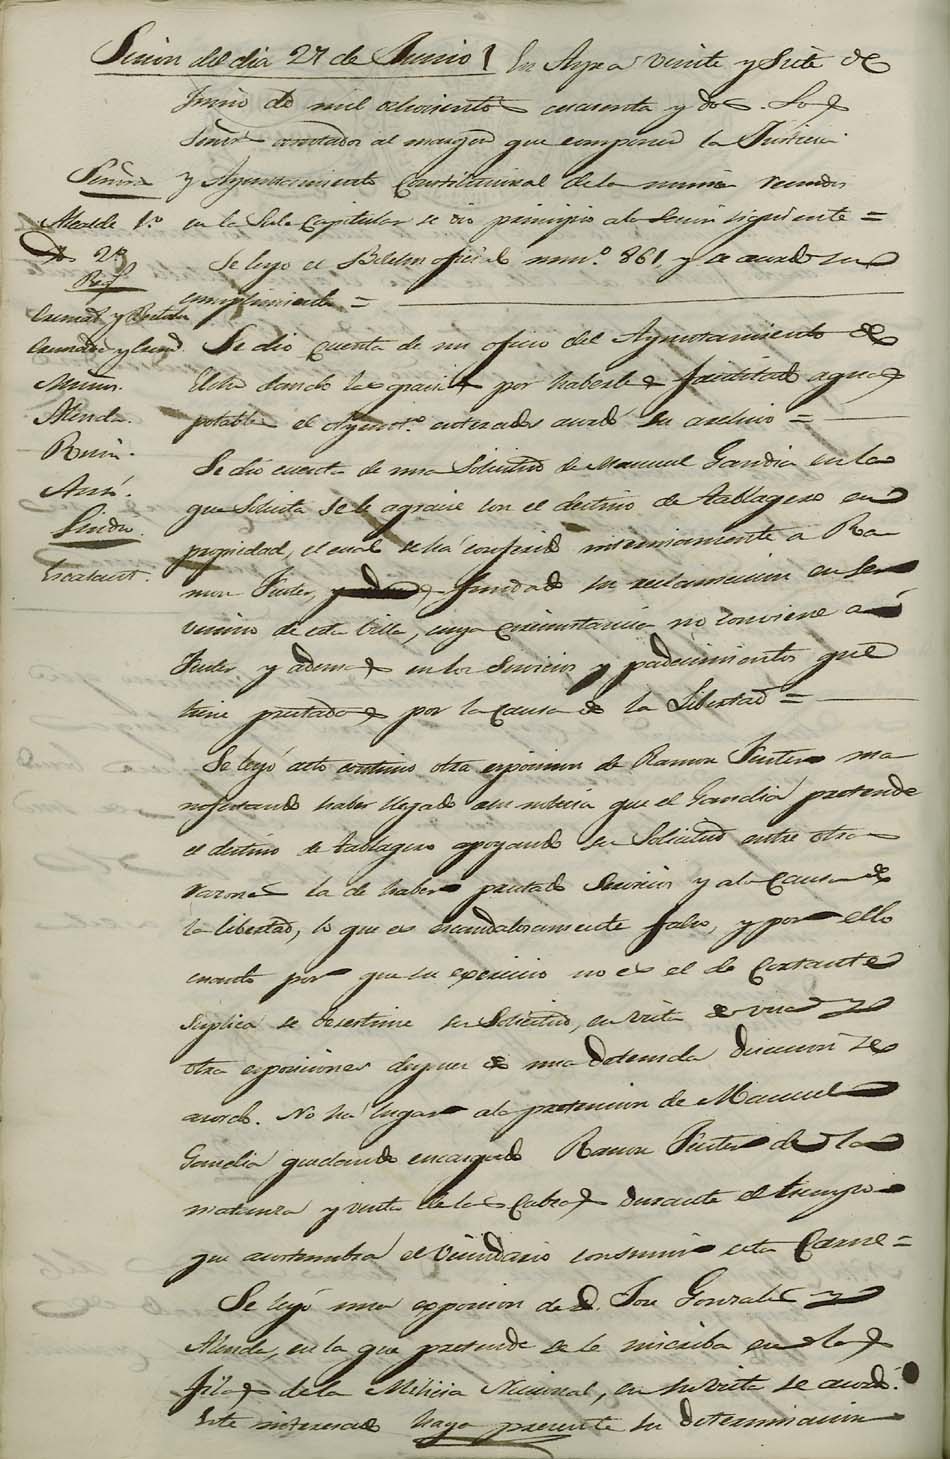 Sesion del dia 27 de Junio / En Aspe a veinte y siete de
Junio de mil ochocientos cuarenta y dos. Los
Señores anotados al margen que componen la Justicia
Señores
y Ayuntamiento Constitucional de la misma reunidos
Alcalde 1.º
en la Sala Capitular se dio principio ala Sesion siguiente =
2.º
Se leyo el Boletin oficial num.º 861, y se acordo su
Reg.s
cumplimiento =
Cremades y
Se dio cuenta de un oficio del Ayuntamiento de
Cremades y
Elche dando las gracias por haberles facilitado aguas
potables el Ayunt.º enterado acordó su archivo =
Almda.
Se dio cuenta de una Solicitud de Manuel Gandia en la
que Solicita se le agracie con el destino de tablagero en
Sindico
propiedad, el cual se ha conferido interinamente a Ra-
Escalant.
mon Fuster, fundado su reclamacion en ser
vecino de esta Villa, cuya circunstancia no conviene a
Fuster y ademas en los Servicios y padecimientos que
tiene prestados por la causa de la Libertad =
Se leyó acto continuo otra esposicion de Ramon Fuster ma
nifestando haber llegado a su noticia que el Gandia pretende
el destino de tablagero apoyando su Solicitud entre otras
razones la de haber prestado Servicios y a la Causa de
la libertad, lo que es escandalosamente falso, y por ello
cuanto por que su egercicio no es el de Cortante
Suplica se desestime su Solicitud, en vista de una y
otra esposiciones despues de una detenida discucion se
acordó. No há lugar ala pretension de Manuel
Gandia quedando encargado Ramon Fuster de la
matanza y venta de las Cabras durante el tiempo
que acostumbra el Vecindario consumir esta Carne =
Se leyó una esposicion de D. Jose Gonzalez y
Almda, en la que pretende se le inscriba en las
filas de la Milicia Nacional, en su vista se acordó.
Este interesado haga presente su determinacion